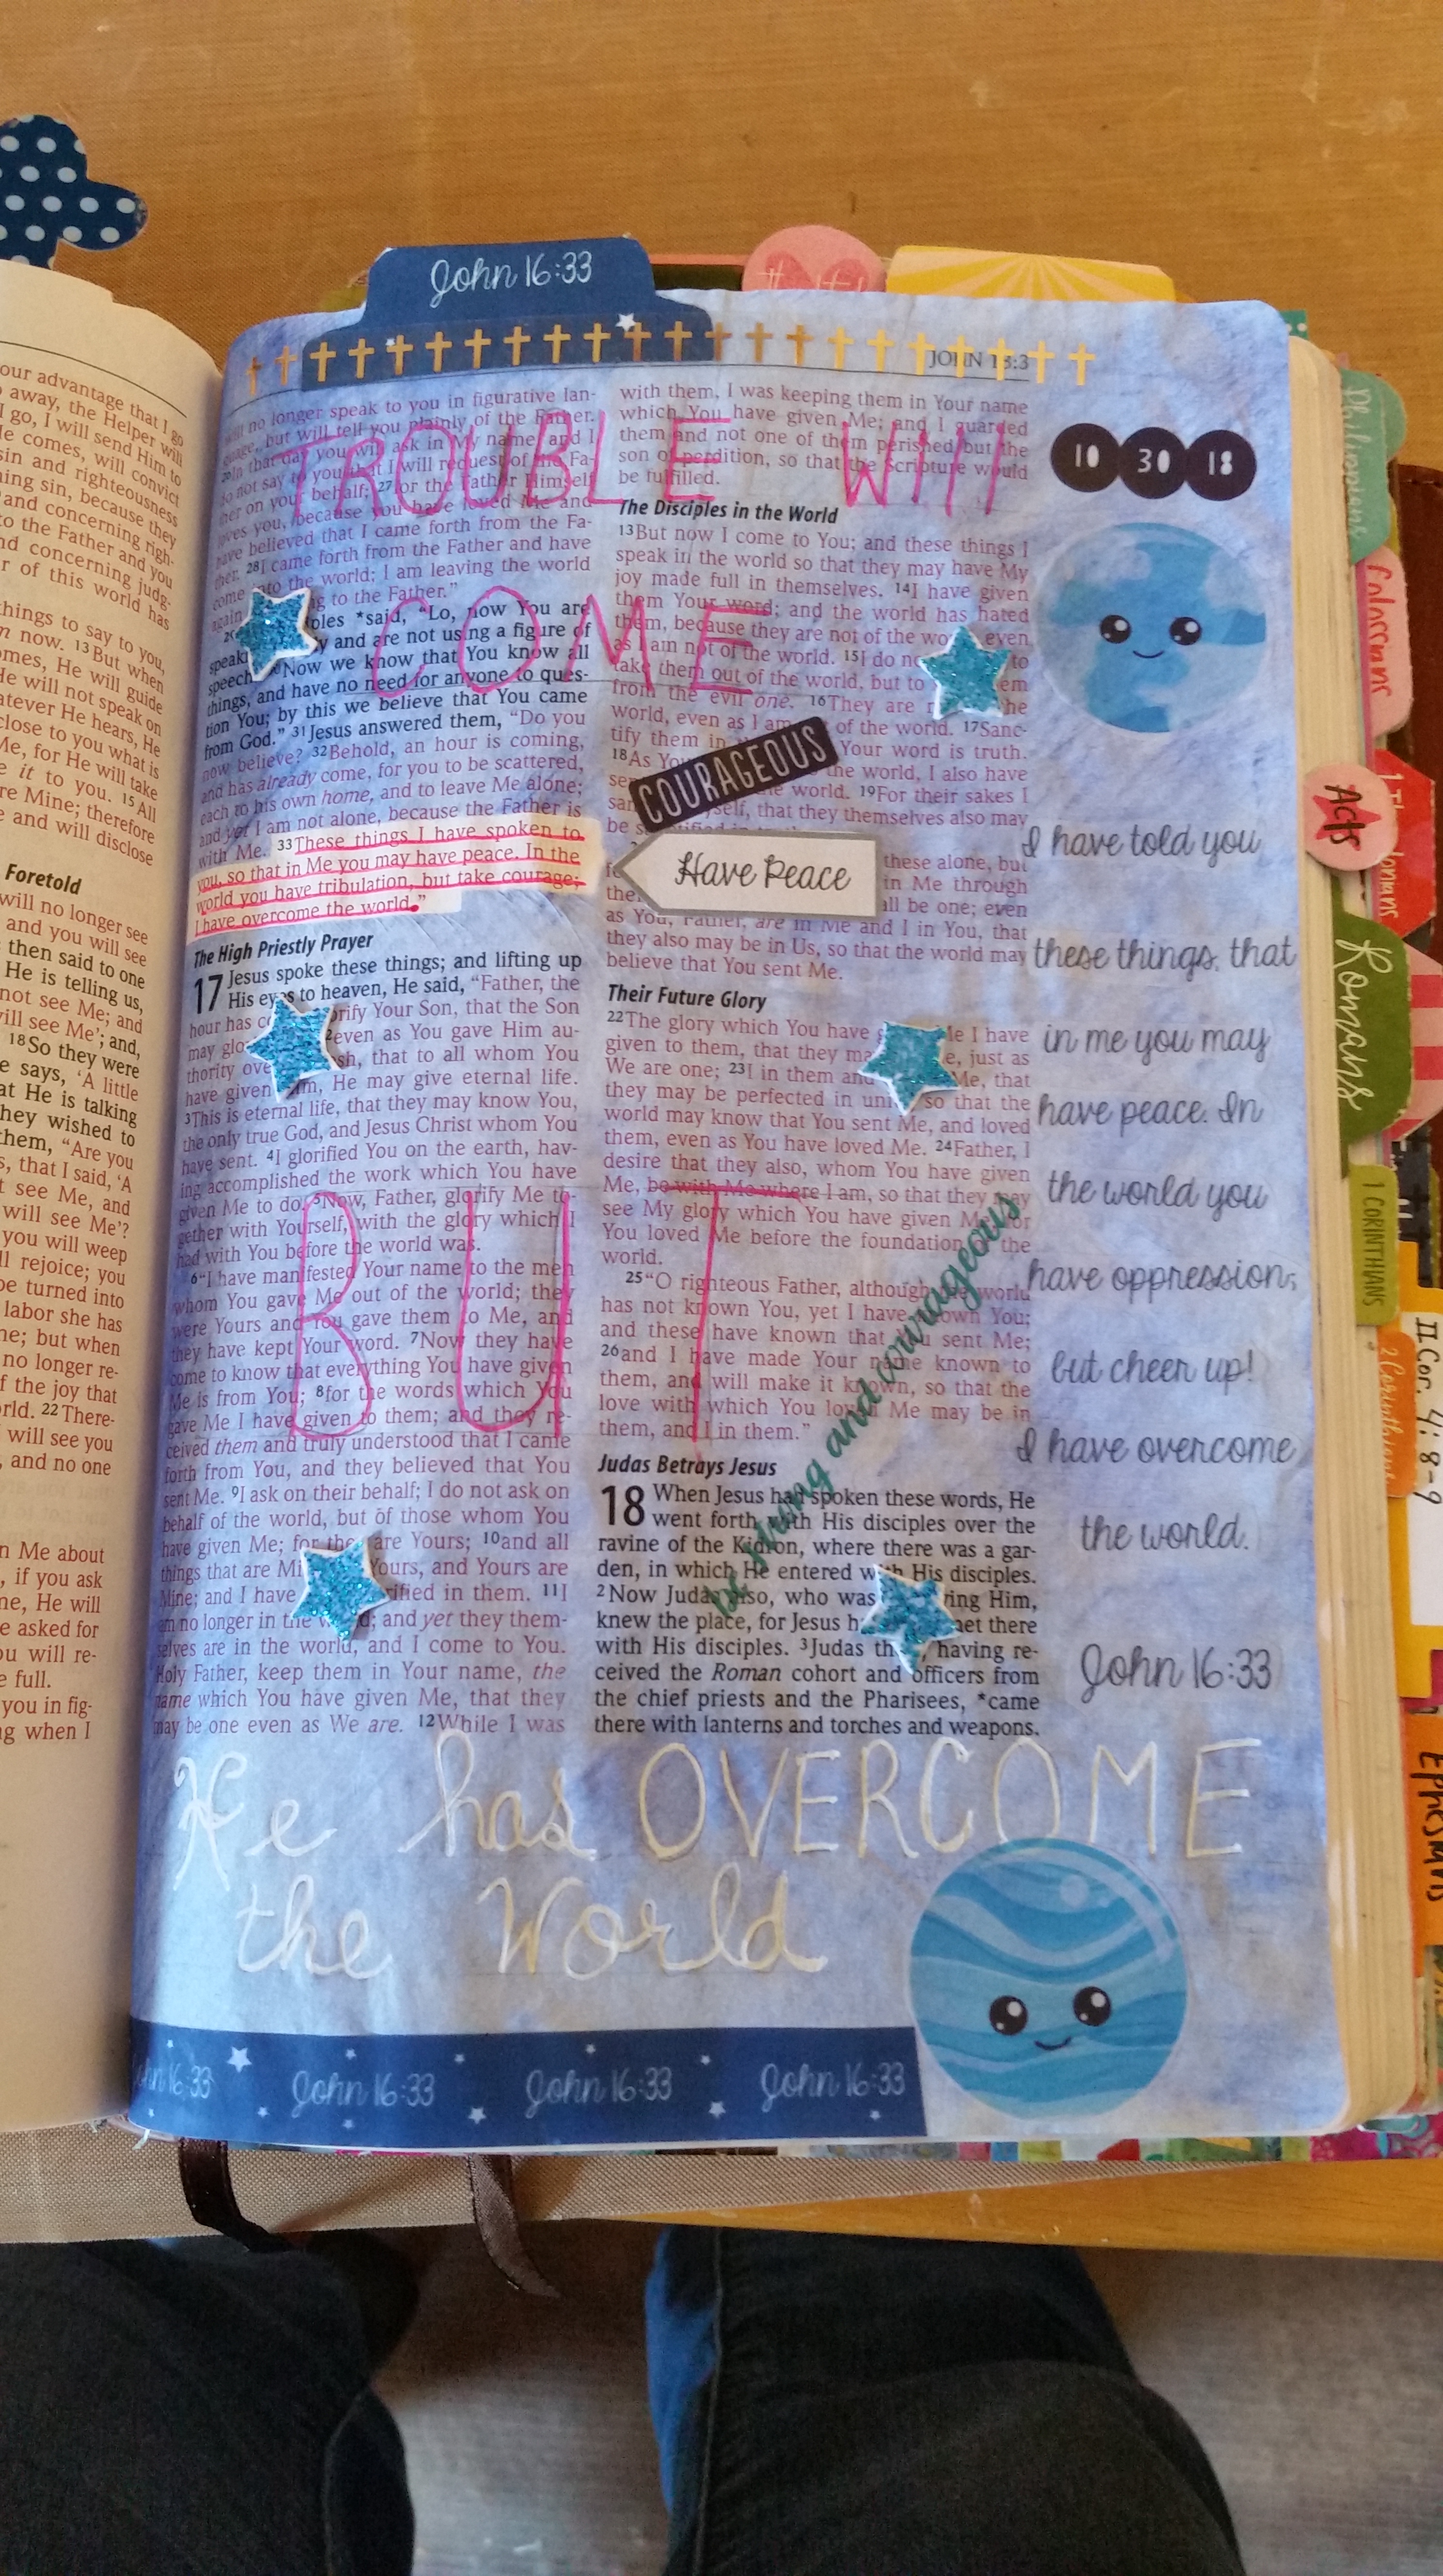 John 16:33
JOHN 18:3
our advantage that I go
away, the Helper will
I go, I will send Him to
comes, will convict
sin and righteousness
sin, because they
and concerning righ-
to the Father and you
concerning judg-
r of this world has
things to say to you,
now. 13But when
comes, He will guide
He will not speak on
whatever He hears, He
close to you what is
Me, for He will take
it to you. 15All
are Mine; therefore
e and will disclose
Foretold
will no longer see
and you will see
then said to one
He is telling us,
not see Me; and
will see Me'; and,
18So they were
says, 'A little
what He is talking
they wished to
them, "Are you
that I said, 'A
see Me, and
will see Me'?
you will weep
rejoice; you
be turned into
labor she has
but when
no longer re-
f the joy that
world. 22There-
will see you
, and no one
n Me about
, if you ask
He will
e asked for
you will re-
e full.
you in fig-
when I
TROUBLE WIll
COME
BUT
will no longer speak to you in figurative lan-
guage, but will tell you plainly of the Father.
In that day you will ask in My name, and I
do not say to you that I will request of the Fa-
ther on your behalf; 27for the Father Himself
loves you, because you have loved Me and
have believed that I came forth from the Fa-
ther. 28I came forth from the Father and have
come into the world; I am leaving the world
again to the Father."
*said, "Lo, now You are
and are not using a figure of
speech. Now we know that You know all
things, and have no need for anyone to ques-
tion You; by this we believe that You came
from God." 31Jesus answered them, "Do you
now believe? 32Behold, an hour is coming,
and has already come, for you to be scattered,
each to his own home, and to leave Me alone;
and yet I am not alone, because the Father is
with Me. 33These things I have spoken to
you, so that in Me you may have peace. In the
world you have tribulation, but take courage;
I have overcome the world."
The High Priestly Prayer
17 Jesus spoke these things; and lifting up
His eyes to heaven, He said, "Father, the
hour has Your Son, that the Son
may even as You gave Him au-
thority that to all whom You
have given Him, He may give eternal life.
3This is eternal life, that they may know You,
the only true God, and Jesus Christ whom You
have sent. 4I glorified You on the earth, hav-
ing accomplished the work which You have
given Me to do. 5Now, Father, glorify Me to-
gether with Yourself, with the glory which I
had with You before the world was.
6"I have manifested Your name to the men
whom You gave Me out of the world; they
were Yours and You gave them to Me, and
they have kept Your word. 7Now they have
come to know that everything You have given
Me is from You; 8for the words which You
gave Me I have given to them; and they re-
ceived them and truly understood that I came
forth from You, and they believed that You
sent Me. 9I ask on their behalf; I do not ask on
behalf of the world, but of those whom You
have given Me; for they are Yours; 10and all
things that are Yours, and Yours are
Mine; and I have in them. 11I
am no longer in the and yet they them-
selves are in the world, and I come to You.
Holy Father, keep them in Your name, the
name which You have given Me, that they
may be one even as We are. 12While I was
with them, I was keeping them in Your name
which You have given Me; and I guarded
them and not one of them perished but the
son of perdition, so that the Scripture would
be fulfilled.
The Disciples in the World
13But now I come to You; and these things I
speak in the world so that they may have My
joy made full in themselves. 14I have given
them Your word; and the world has hated
them, because they are not of the even
as I am not of the world. 15I do to
take them out of the world, but to
from the evil one. 16They are
world, even as I am of the world. 17Sanc-
tify them in Your word is truth.
18As the world, I also have
world. 19For their sakes I
that they themselves also may
be
COURAGEOUS
Have Peace
these alone, but
in Me through
all be one; even
as You, Father, are in Me and I in You, that
they also may be in Us, so that the world may
believe that You sent Me.
Their Future Glory
22The glory which You have I have
given to them, that they just as
We are one; 23I in them and Me, that
they may be perfected in so that the
world may know that You sent Me, and loved
them, even as You have loved Me. 24Father, I
desire that they also, whom You have given
Me, be with Me where I am, so that they may
see My glory which You have given Me, for
You loved Me before the foundation of the
world.
25"O righteous Father, although the world
has not known You, yet I have known You;
and these have known that You sent Me;
26and I have made Your name known to
them, and will make it known, so that the
love with which You loved Me may be in
them, and I in them."
be strong and courageous
Judas Betrays Jesus
18 When Jesus had spoken these words, He
went forth with His disciples over the
ravine of the Kidron, where there was a gar-
den, in which He entered with His disciples.
2Now Judas also, who was Him,
knew the place, for Jesus there
with His disciples. 3Judas having re-
ceived the Roman cohort and officers from
the chief priests and the Pharisees, *came
there with lanterns and torches and weapons.
10 30 18
I have told you
these things, that
in me you may
have peace. In
the world you
have oppression;
but cheer up!
I have overcome
the world.
John 16:33
He has OVERCOME
the World
John 16:33 John 16:33 John 16:33
Philippians
Acts
Romans
1 CORINTHIANS
2 Corinthians
II Cor. 4:8-9